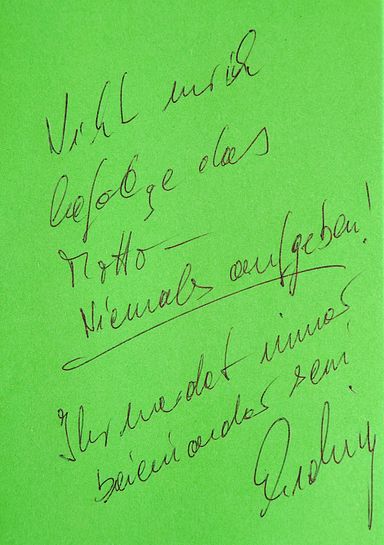 Nicht mich
befolge das
Motto –
Niemals aufgeben!
Ihr werdet immer
beieinander sein